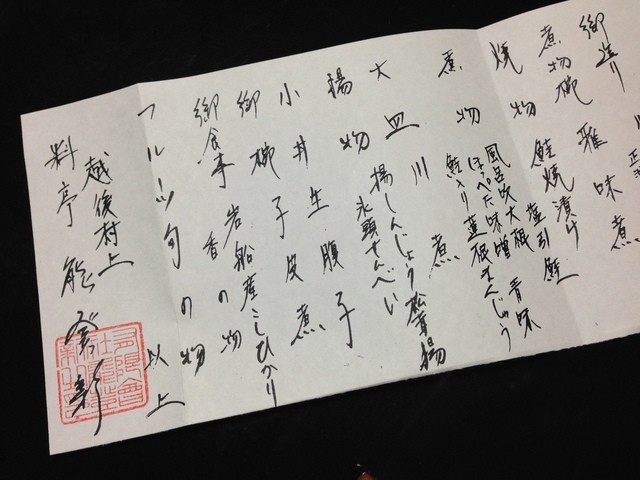 御造り
煮物椀 雅味煮
焼物 鮭焼漬け 塩引鮭
風呂吹大根 青味
ほっぺた味噌
煮物 鮭入り蓮根まんじゅう
大皿 川煮
揚物 揚しんじょう 松茸揚
氷頭せんべい
小丼 生腹子
御椀 子皮煮
御食事 岩船産こしひかり
香の物
フルーツ 旬の物
以上
越後村上
料亭 能登新